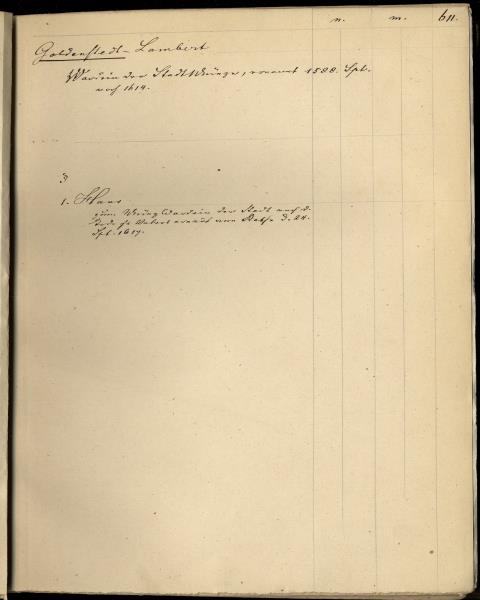 n. m. 611.
Goldenstedt Lambert
Wardein der Stadt Münze, ernannt 1588. Spt.
noch 1614.
1. Hans
zum Münz Wardein der Stadt nach d.
Tode s. Vaters ernannt vom Rathe d. 24.
Spt. 1617.